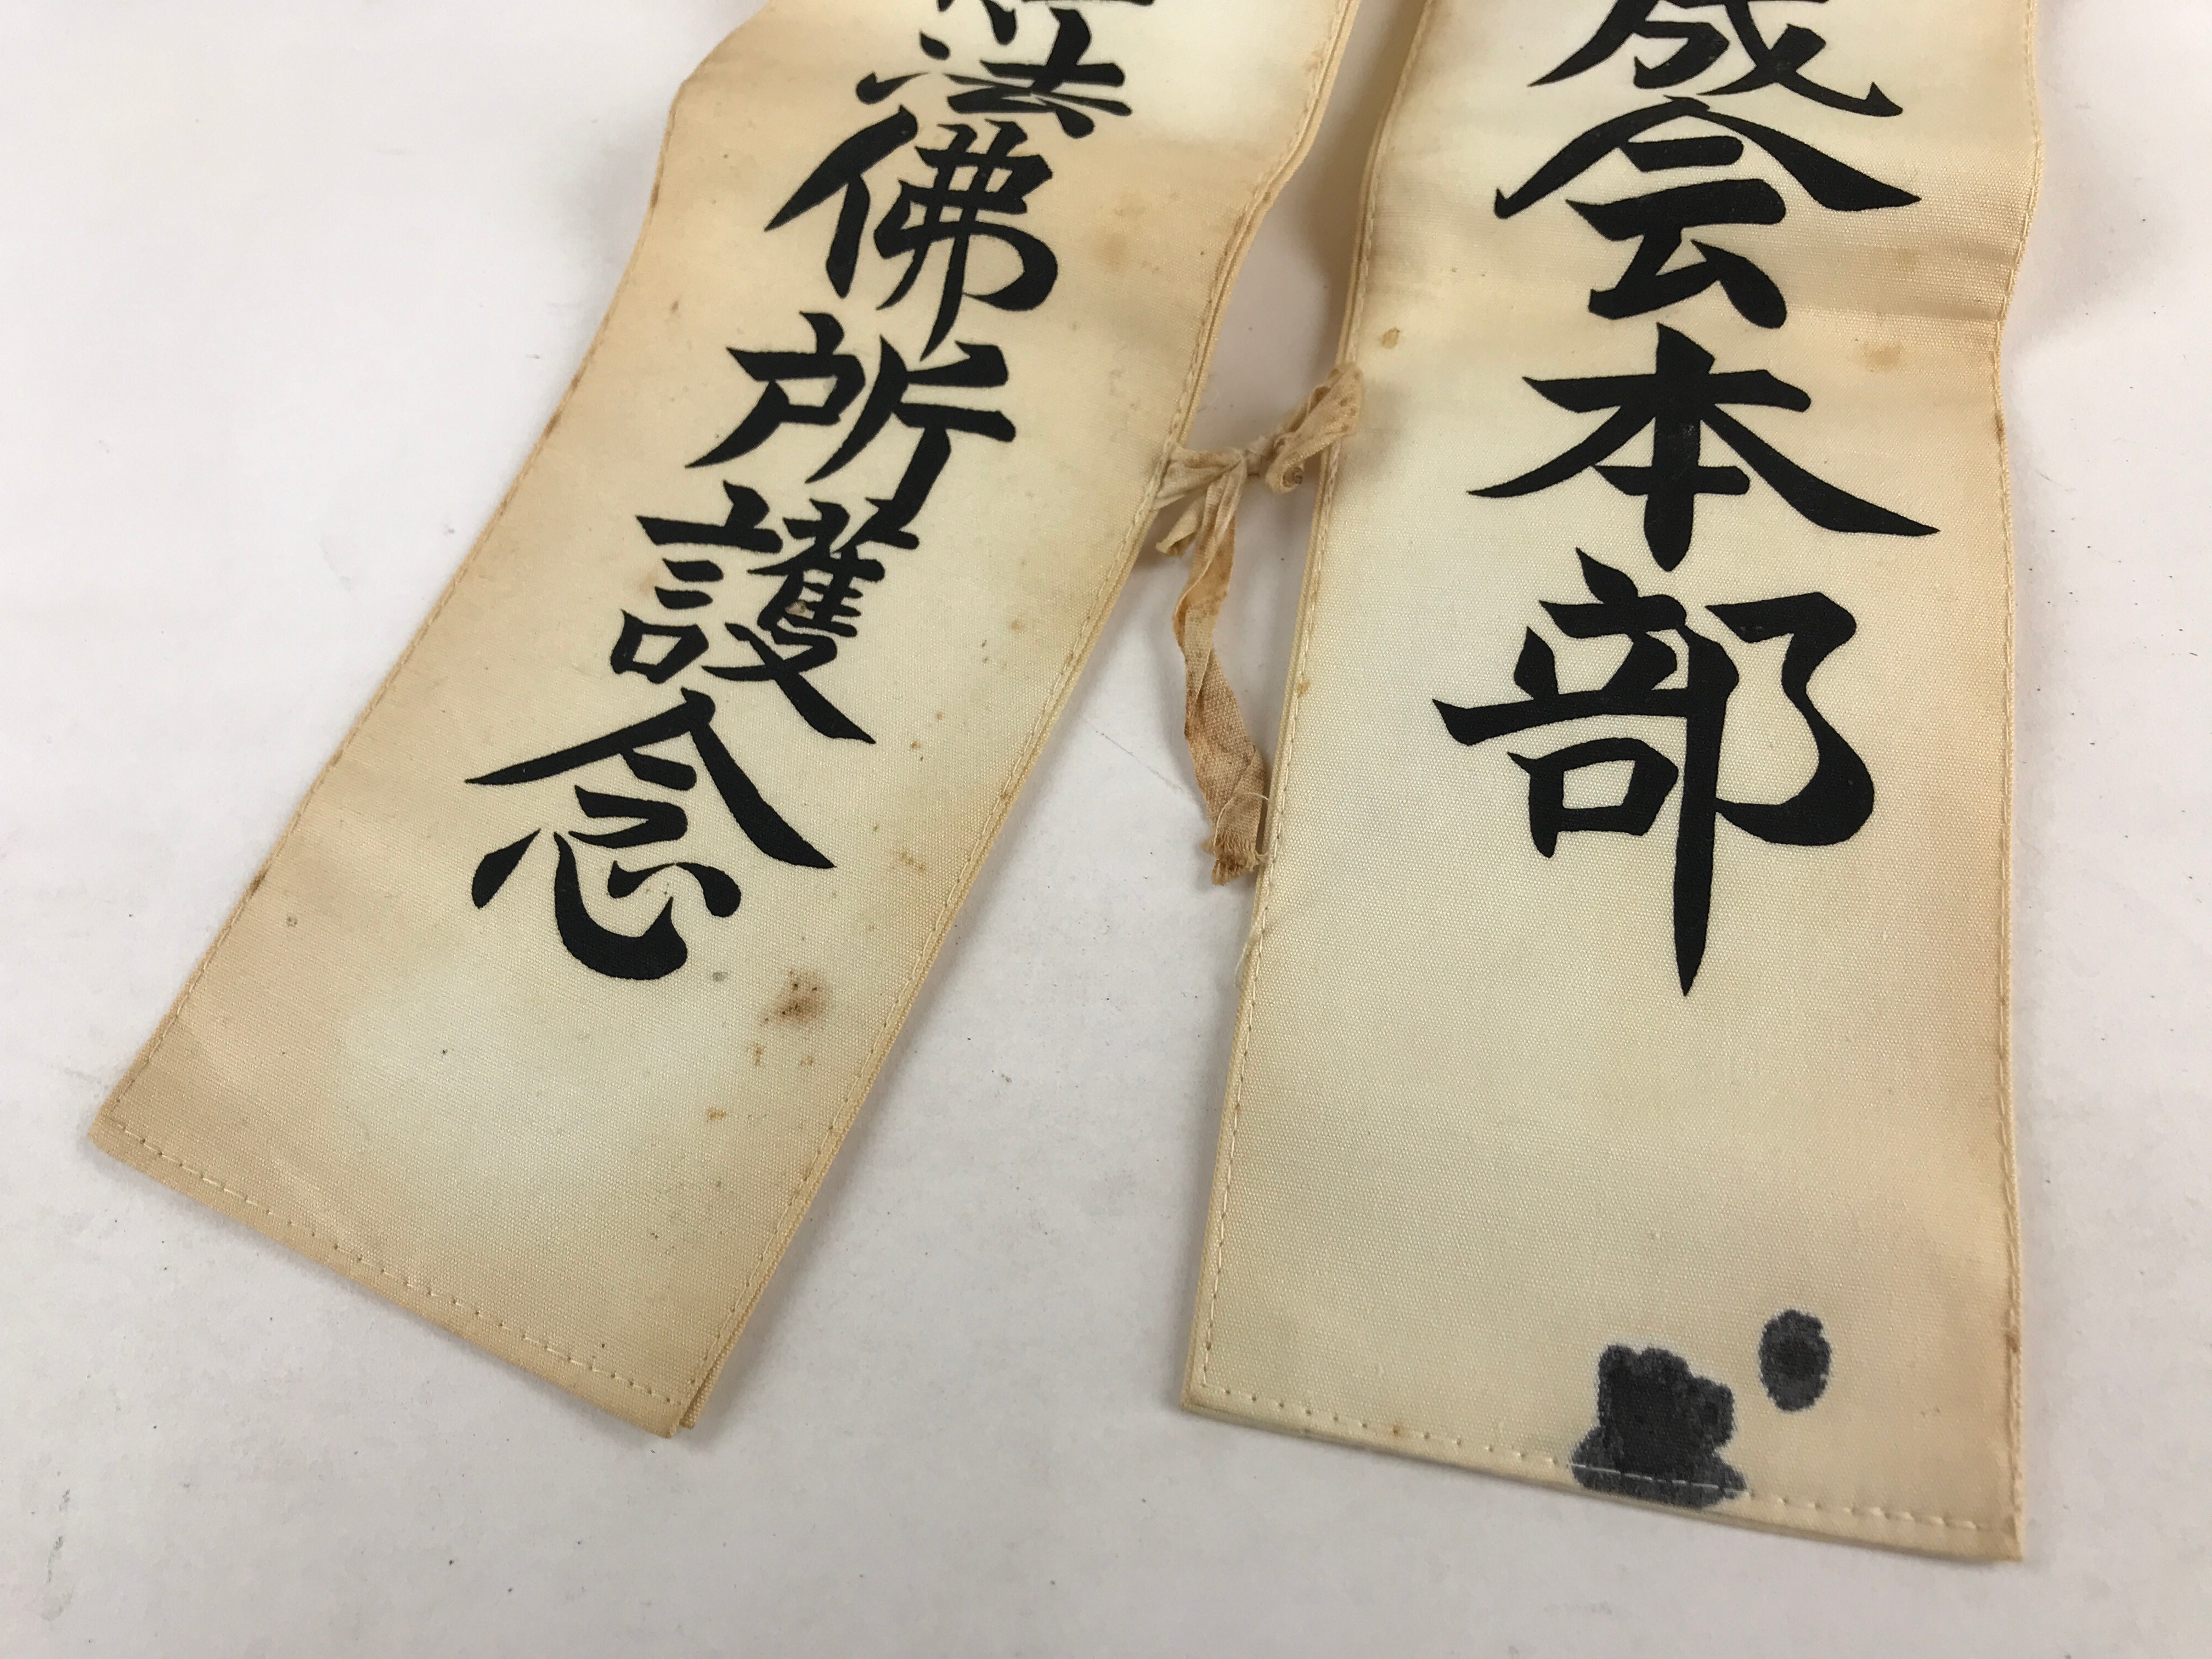 成会本部
法佛所護念